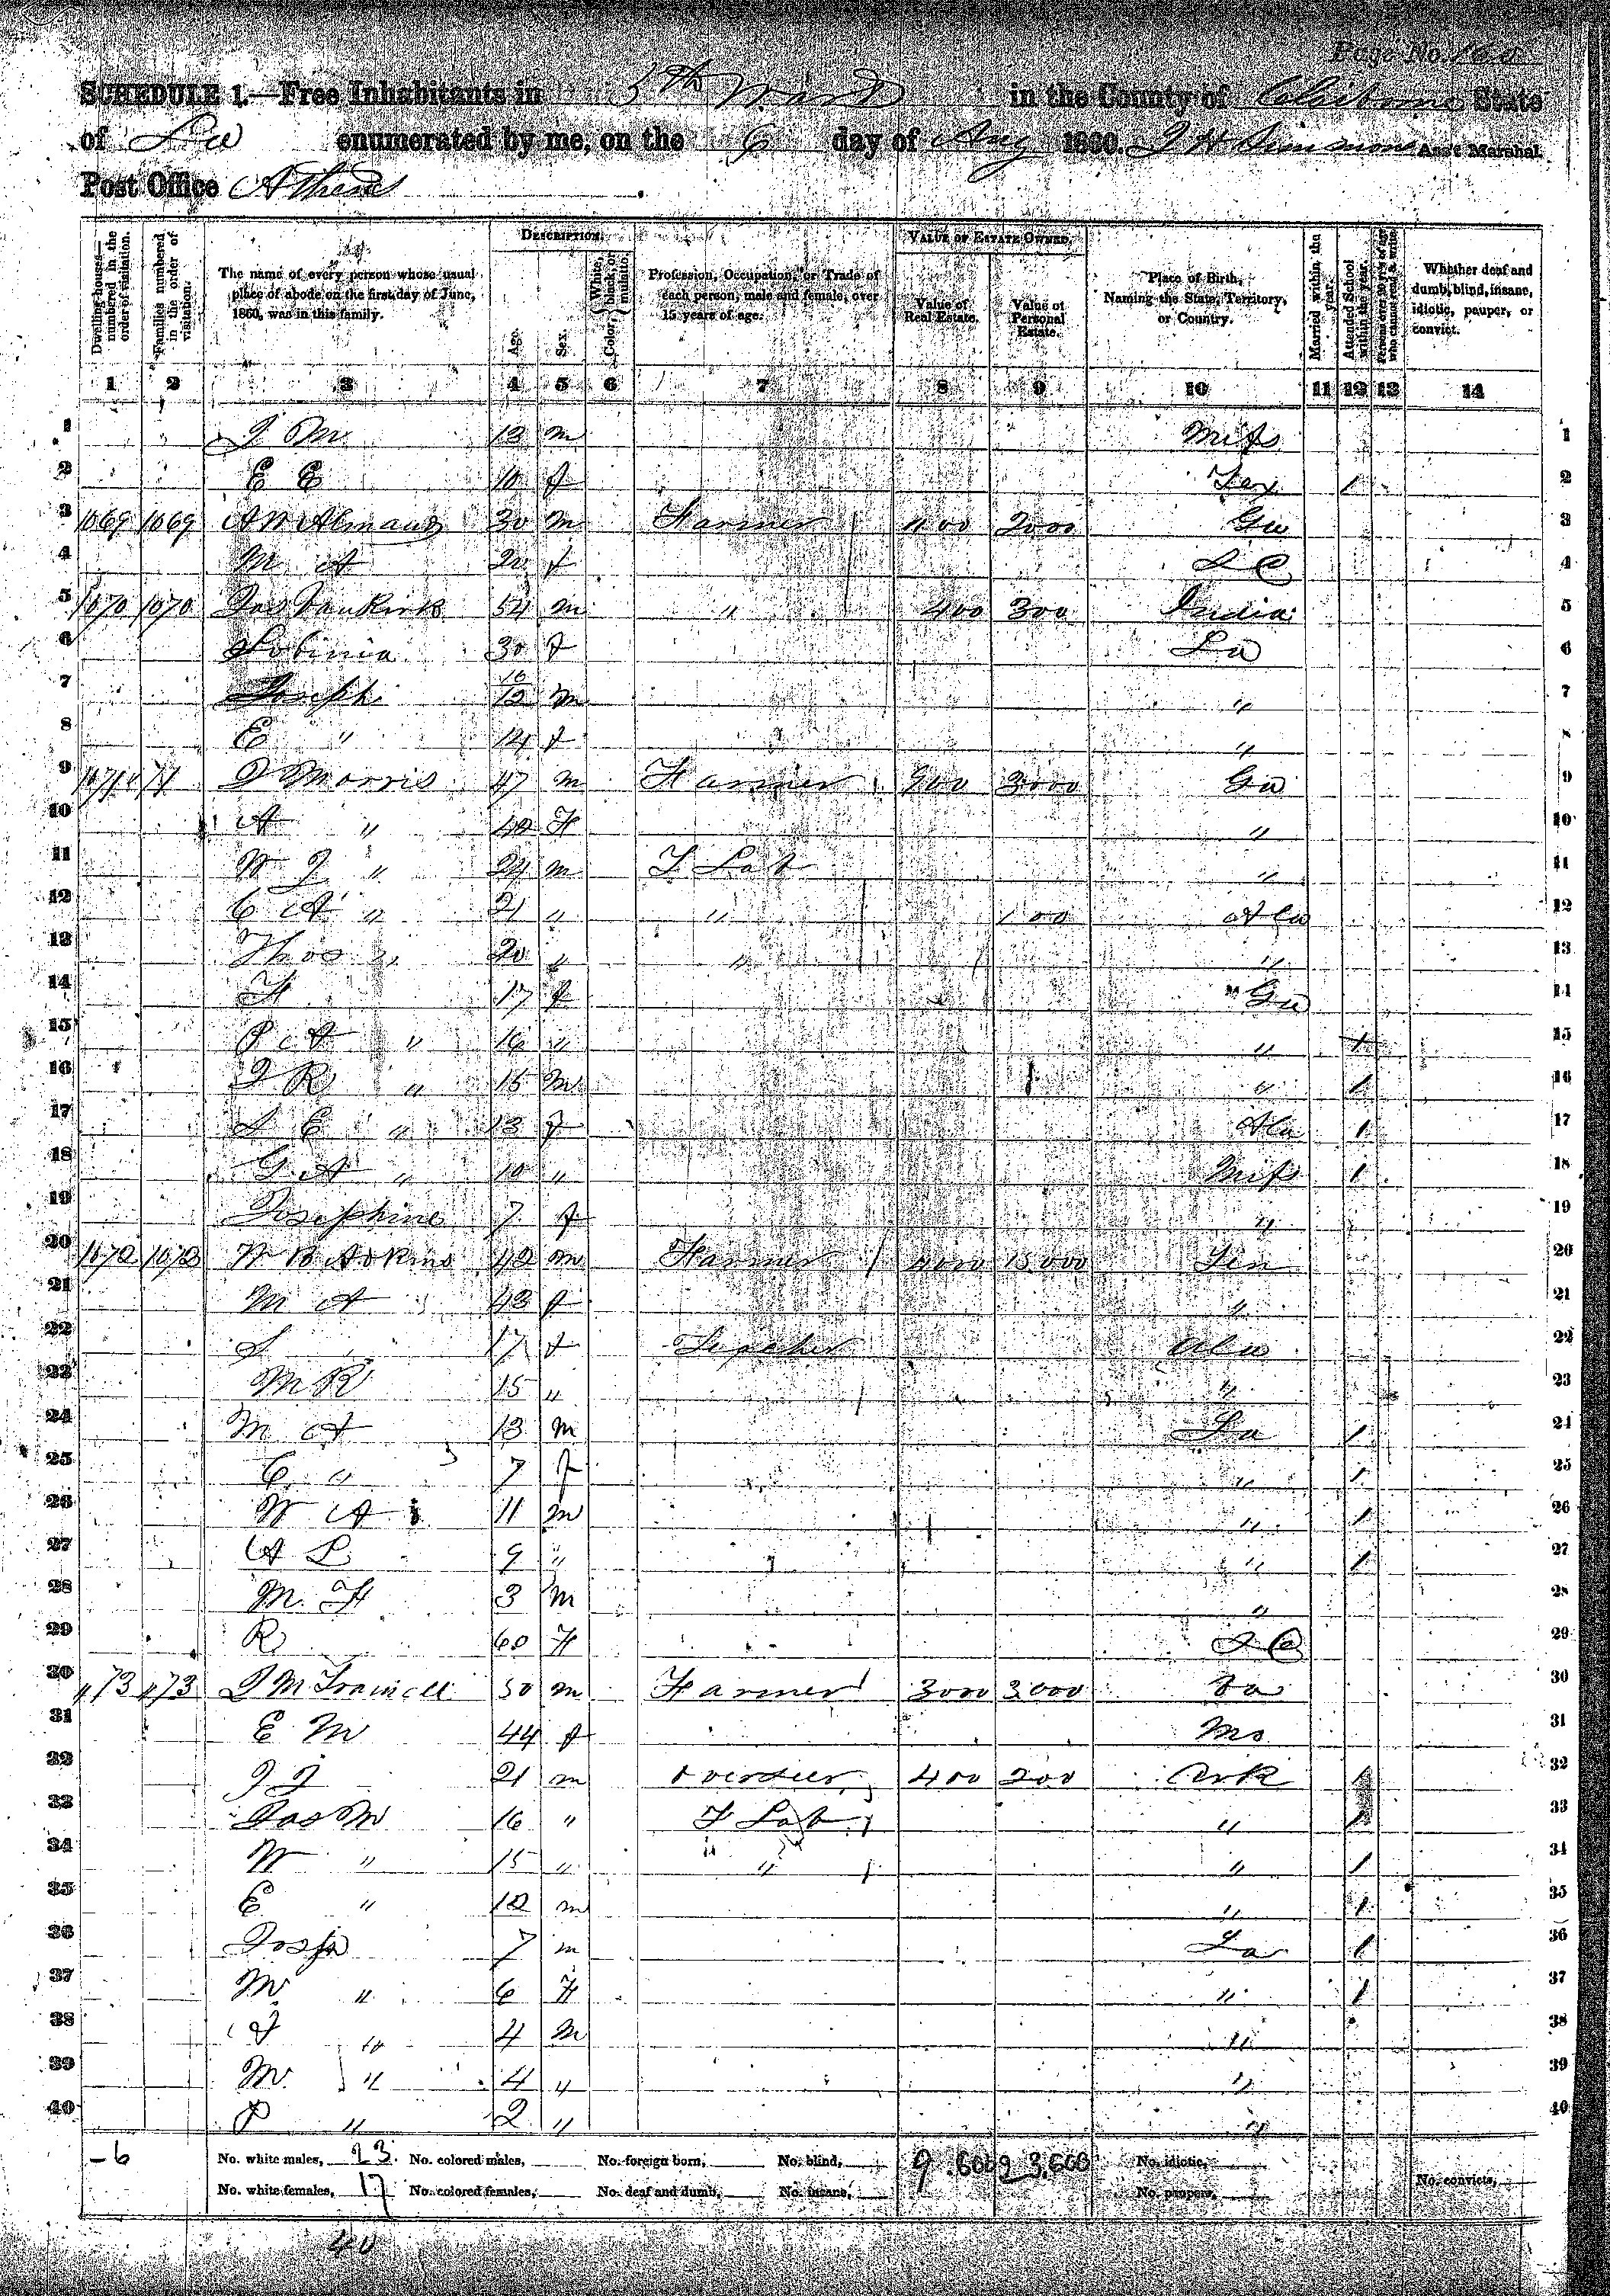 Page No. 160
SCHEDULE 1.—Free Inhabitants in 5th Ward in the County of Claiborne State
of La enumerated by me, on the 6 day of Aug 1860. J H Simmons Ass't Marshal.
Post Office Athens
Dwelling-houses—numbered in the order of visitation.
Families numbered in the order of visitation.
The name of every person whose usual place of abode on the first day of June, 1860, was in this family.
DESCRIPTION.
Age.
Sex.
Color, White, black, or mulatto.
Profession, Occupation, or Trade of each person, male and female, over 15 years of age.
VALUE OF ESTATE OWNED.
Value of Real Estate.
Value of Personal Estate.
Place of Birth, Naming the State, Territory, or Country.
Married within the year.
Attended School within the year.
Persons over 20 y'rs of age who cannot read & write.
Whether deaf and dumb, blind, insane, idiotic, pauper, or convict.
1 2 3 4 5 6 7 8 9 10 11 12 13 14
1 J M 13 m Miss 1
2 E E 10 f Tex / 2
3 1069 1069 A W Almand 30 m Farmer 400 2000 Ga 3
4 M A 20 f S C 4
5 1070 1070 Jas Vankirk 54 m " 400 300 India 5
6 30 f La 6
7 Joseph 10/12 m " 7
8 E " 14 f " 8
9 1071 J Morris 47 m Farmer 900 3000 Ga 9
10 A " 42 F " 10
11 W J " 24 m F Lab " 11
12 C A " 21 " " 100 Ala 12
13 Thos " 20 " " " 13
14 F 17 f " Ga 14
15 P A " 16 " " / 15
16 J R " 15 M " / 16
17 S E " 13 f Ala / 17
18 G A " 10 " Miss / 18
19 Josephine 7 f " 19
20 1072 1072 W B Adkins 42 m Farmer 4000 15,000 Ten 20
21 M A 43 f " 21
22 S 17 f Teacher Ala 22
23 M R 15 " " 23
24 M A 13 m La / 24
25 C " 7 f " / 25
26 W A 11 m " / 26
27 A L 9 " " / 27
28 M. F 3 m " 28
29 R 60 F S C 29
30 1073 1073 J M Tramell 50 m Farmer 3000 3,000 30
31 E M 44 f Mo 31
32 J J 21 m overseer 400 200 Ark / 32
33 Jas M 16 " F Lab " / 33
34 W " 15 " " " / 34
35 E " 12 m " / 35
36 7 m La / 36
37 M " 6 F " / 37
38 J " 4 m " 38
39 M " 4 " " 39
40 P " 2 " " 40
-6 No. white males, 23. No. colored males, No. foreign born, No. blind, 9.600 23,600 No. idiotic,
No. white females, 17 No. colored females, No. deaf and dumb, No. insane, No. paupers, No. convicts,
40